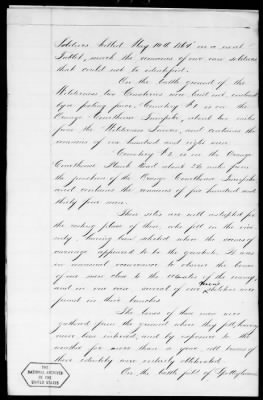 Soldiers killed May 10th 1864 in a neat
mark the remains of our own soldiers
that could not be identified.
On the battle ground of the
Wilderness two Cemeteries were laid out, enclosed
by a paling fence, Cemetery No 1 is on the
Orange Courthouse Turnpike, about two miles
from the Wilderness Tavern, and contains the
remains of one hundred and eight men.
Cemetery No 2 is on the Orange
Courthouse Plank Road about 2½ miles from
the junction of the Orange Courthouse Turnpike
and contains the remains of five hundred and
thirty four men.
These sites are well adapted for
the resting place of those, who fell in the vici-
nity, having been selected where the scenes of
carnage appeared to be the greatest. It was
no unusual occurrence to observe the bones
of our men close to the abatis of the enemy
and in one case several of their skeletons were
found in their trenches
The bones of these men were
gathered from the ground where they fell, having
never been interred, and by exposure to the
weather for more than a year all traces of
their identity were entirely obliterated.
On the battle field of Spottsylvania
THE NATIONAL
ARCHIVES OF THE
UNITED STATES